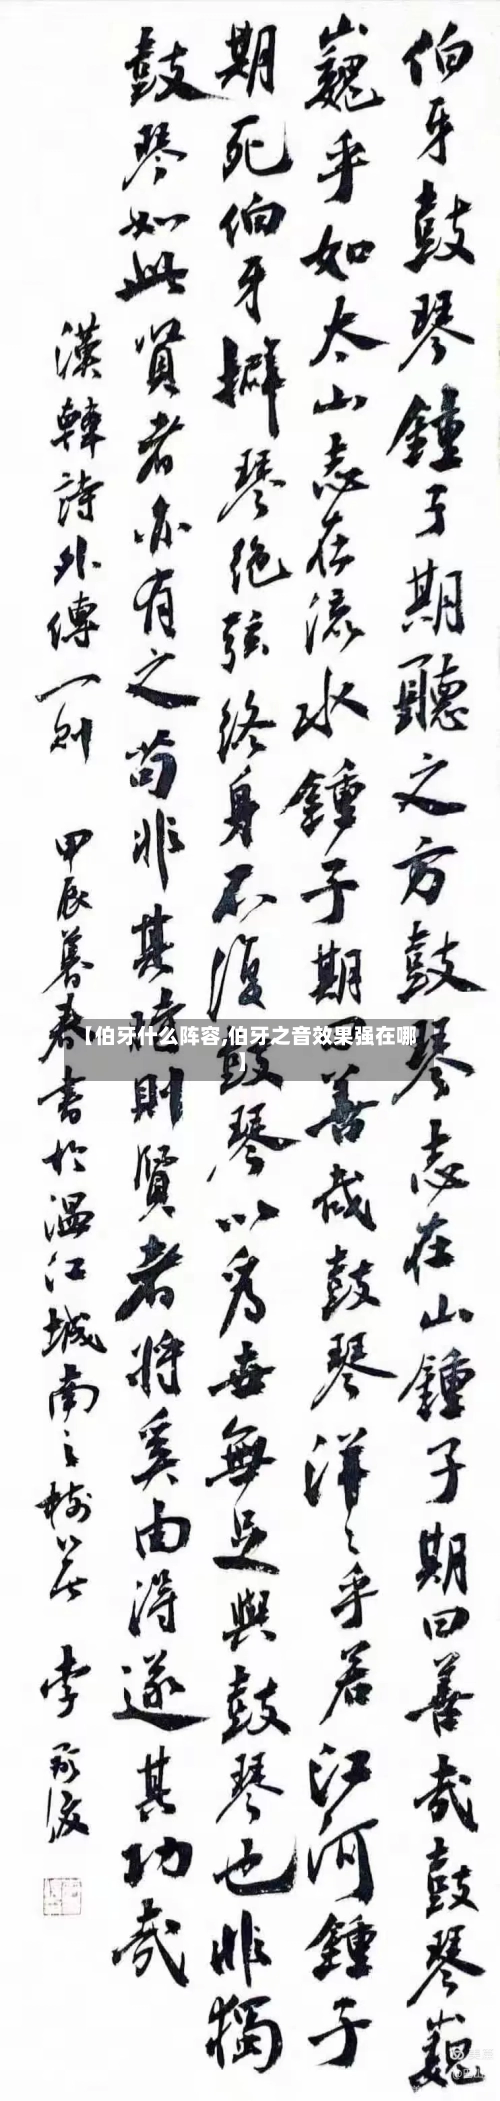 伯牙鼓琴鍾子期聽之方鼓琴志在山鍾子期曰善哉鼓琴巍
巍乎如太山志在流水鍾子期曰善哉鼓琴洋〻乎若江河鍾子
期死伯牙擗琴絕弦終身不復鼓琴以為世無足與鼓琴也非獨
鼓琴如此賢者亦有之苟非其時則賢者將奚由得遂其功哉
漢韓詩外傳一則 甲辰暮春書於溫江城南之 李
【伯牙什么阵容,伯牙之音效果强在哪
】